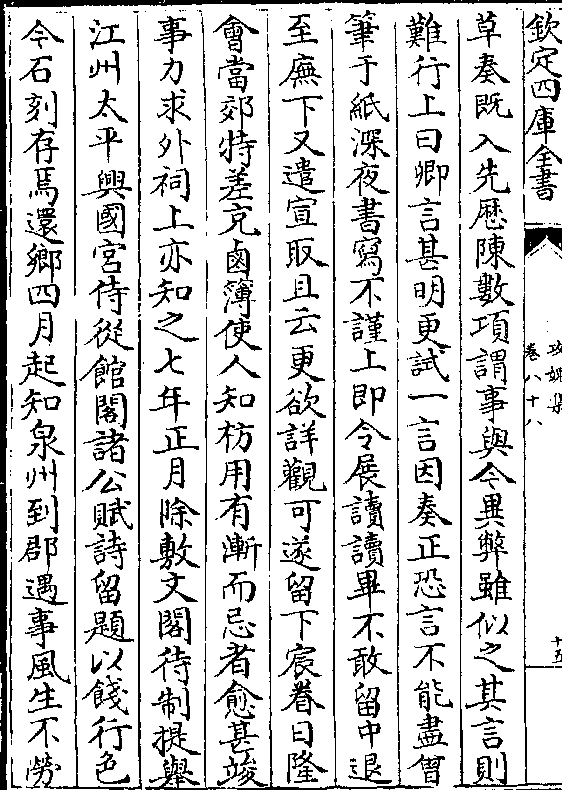 欽定四庫全書
攻媿集
卷八十八
十五
草奏既入先歷陳數項謂事與今異弊雖似之其言則
難行上曰卿言甚明更試一言因奏正恐言不能盡嘗
筆于紙深夜書寫不謹上即令展讀讀畢不敢留中退
至廡下又遣宣取且云更欲詳觀可遂留下宸眷日隆
會當郊特差充鹵簿使人知枋用有漸而忌者愈甚竣
事力求外祠上亦知之七年正月除敷文閣待制提舉
江州太平興國宫侍從館閣諸公賦詩留題以餞行色
今石刻存焉還鄉四月起知泉州到郡遇事風生不勞